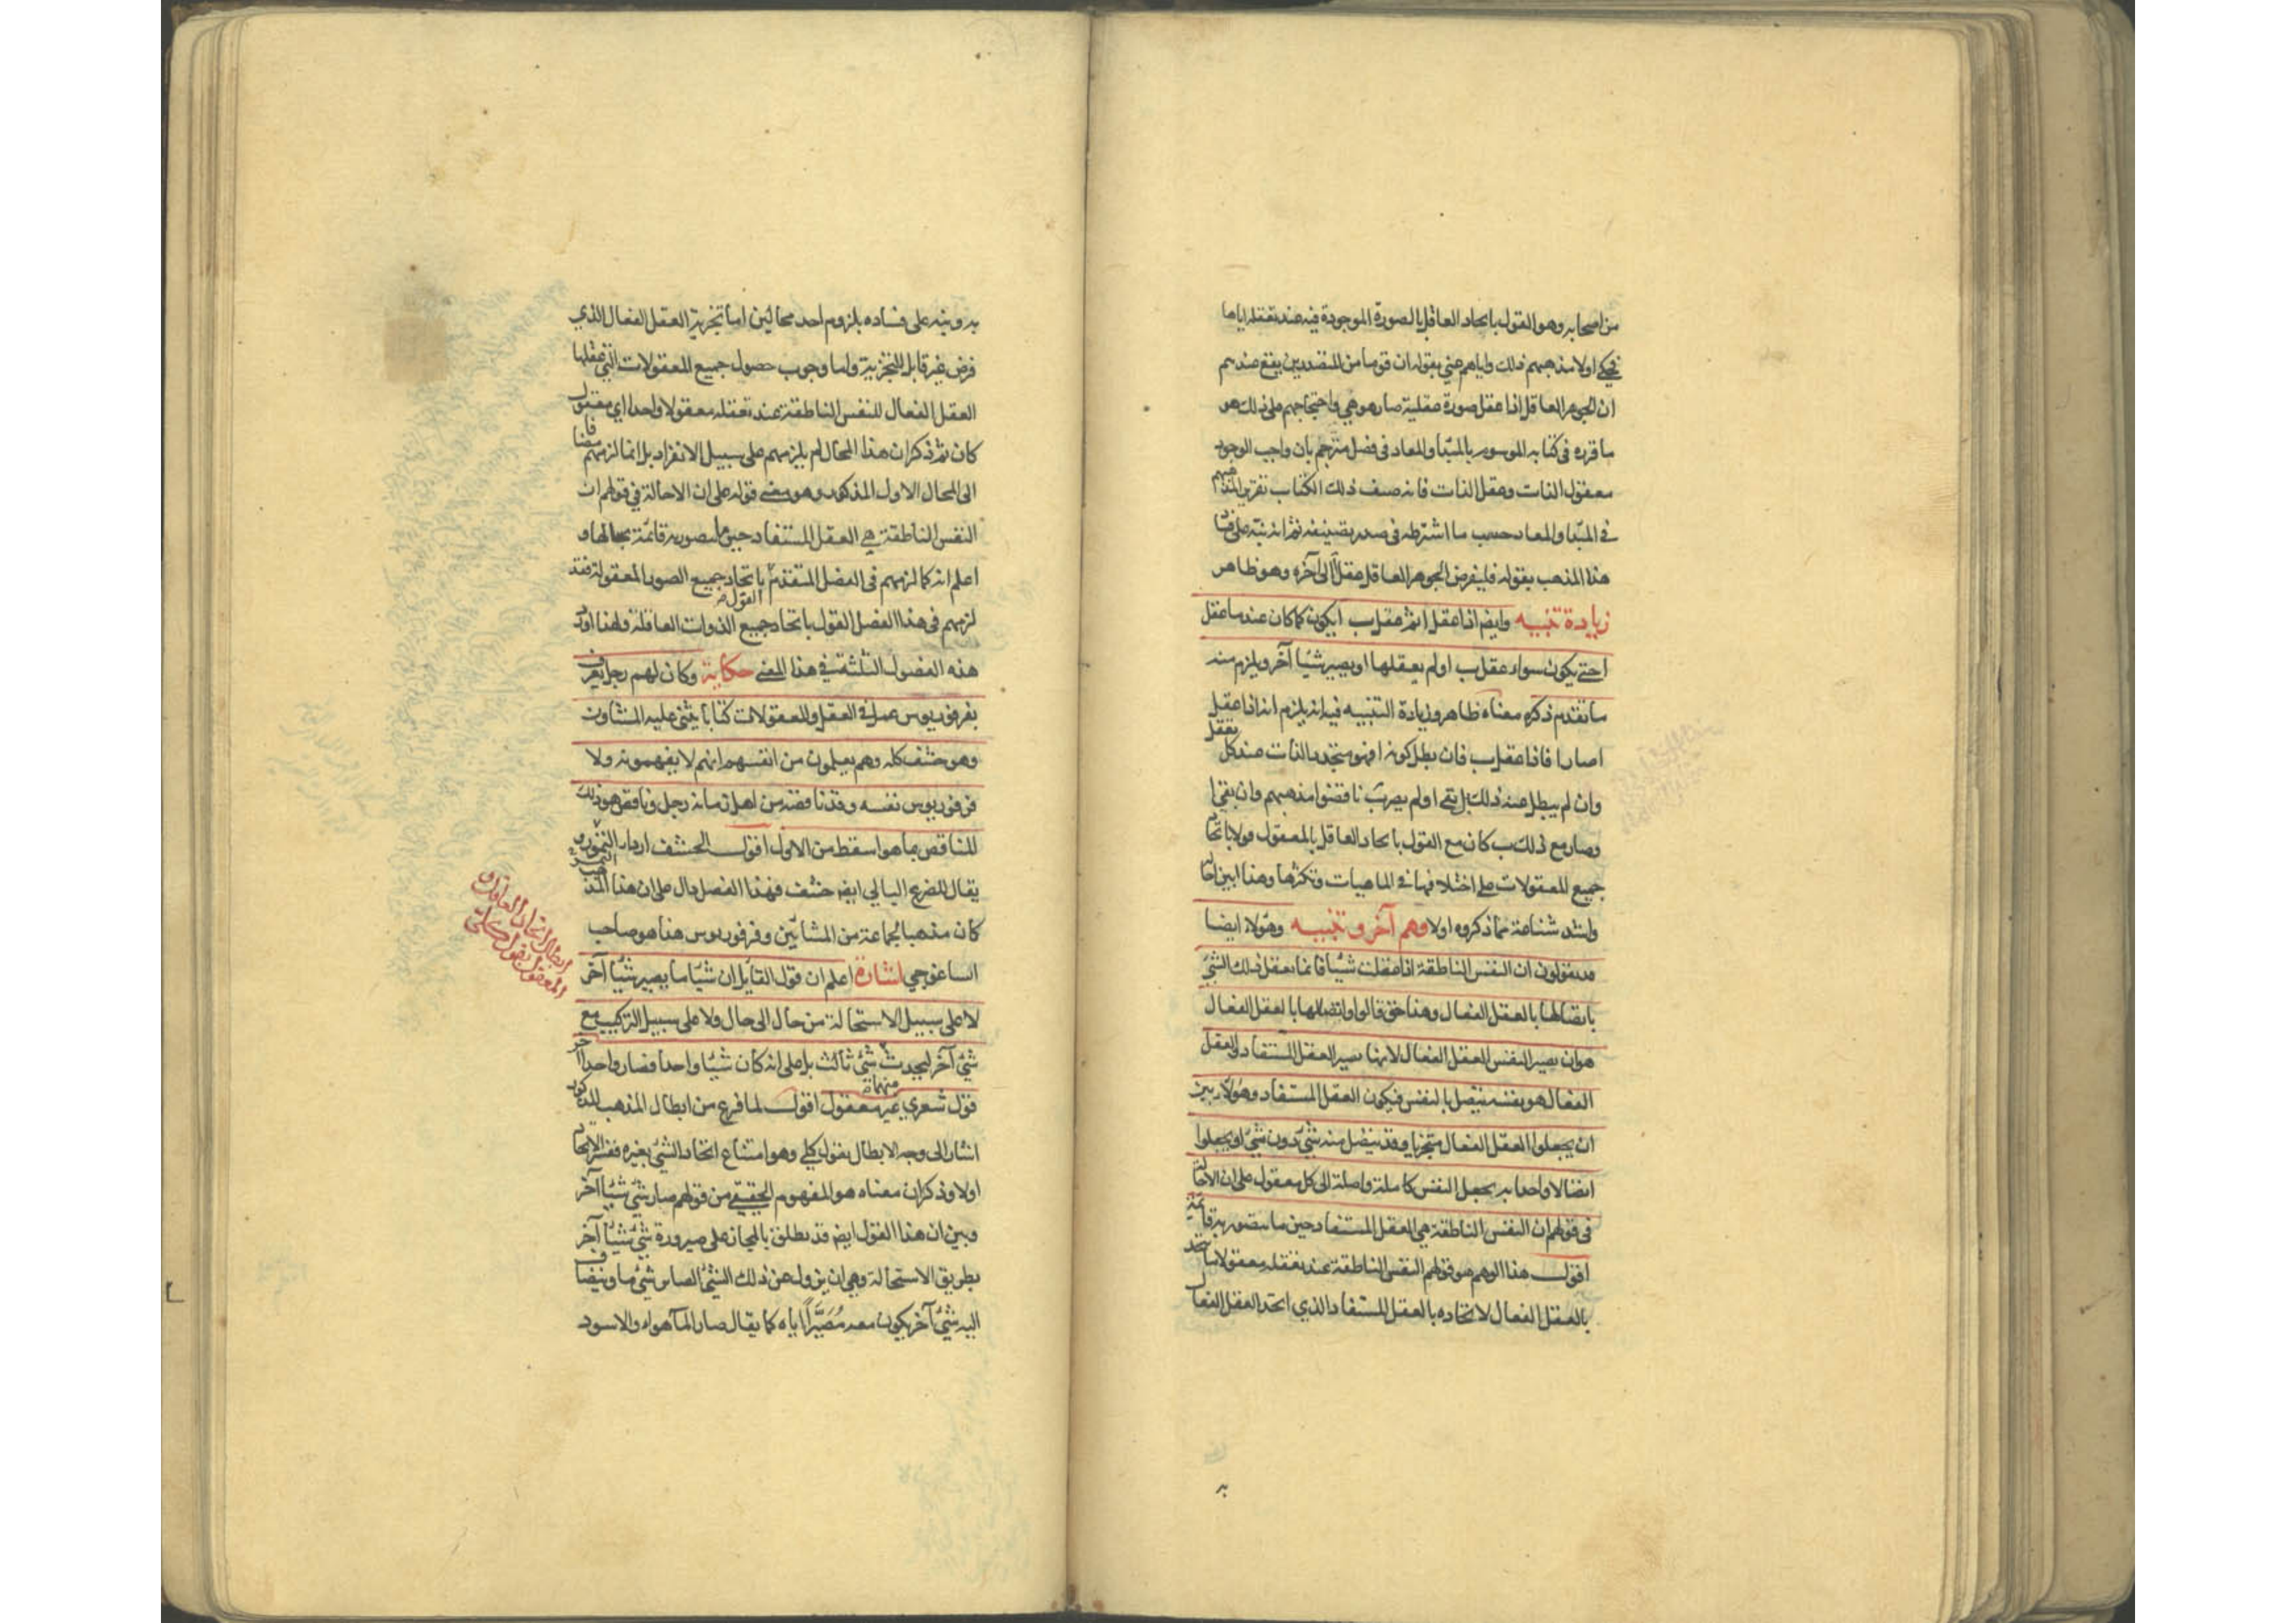 من اصحابه وهو القول باتحاد العاقل بالصورة الموجودة فيه عند تعقله اياها
فحكى اولا مذهبهم ذلك واياهم عني بقوله ان قوما من المتصدرين يقع عندهم
ان الجوهر العاقل اذا عقل صورة عقلية صار هو هي واحتجاجهم على ذلك هو
ما قرره في كتابه الموسوم بالمبدأ والمعاد في فصل مترجم بان واجب الوجود
معقول الذات وعقل الذات فانه صنف ذلك الكتاب تقريرا لمذهبهم
في المبدأ والمعاد حسب ما اشترطه في صدر تصنيفه ثم انه نبه على فسا
هذا المذهب بقوله فليفرض الجوهر العاقل عقل آ الى آخره وهو ظاهر
زيادة تنبيه وايضا اذا عقل ا ثم عقل ب ايكون كما كان عند ما عقل
ا حتى يكون سواء عقل ب او لم يعقلها او يصير شيئا آخر ويلزم منه
ما تقدم ذكره معناه ظاهر وزيادة التنبيه فيه انه يلزم انه اذا عقل
ا صار ا فاذا عقل ب فان بطل كونه ا فهو متجدد الذات عند كل تعقل
وان لم يبطل عنه ذلك بل بقى ا ولم يصر ب ناقضوا مذهبهم وان بقي ا
وصار مع ذلك ب كان مع القول باتحاد العاقل بالمعقول قولا باتحاد
جميع المعقولات على اختلافها في الماهيات وتكثرها وهذا ابين احالة
واشد شناعة مما ذكروه اولا وهم آخر وتنبيه وهؤلاء ايضا
قد يقولون ان النفس الناطقة اذا عقلت شيئا فانما تعقل ذلك الشئ
باتصالها بالعقل الفعال وهذا حق قالوا واتصالها بالعقل الفعال
هو ان تصير النفس العقل الفعال لانها تصير العقل المستفاد والعقل
الفعال هو نفسه يتصل بالنفس فيكون العقل المستفاد وهؤلاء بين
ان يجعلوا العقل الفعال متجزيا وقد يتصل منه شئ دون شئ او يجعلوا
اتصالا واحدا به يجعل النفس كاملة واصلة الى كل معقول على ان الاحالة
في قولهم ان النفس الناطقة هي العقل المستفاد حين ما يتصور به قائمة
اقول هذا الوهم هو قولهم النفس الناطقة عند تعقلها معقولا تتحد
بالعقل الفعال لاتحاده بالعقل المستفاد الذي اتحد العقل الفعال
به
به ونبه على فساده بلزوم احد محالين اما تجزية العقل الفعال الذي
فرض غير قابل للتجزية واما وجوب حصول جميع المعقولات التي عقلها
العقل الفعال للنفس الناطقة عند تعقله معقولا واحدا اي معقول
كان ثم ذكر ان هذا المحال لم يلزمهم على سبيل الانفراد بل انما لزمهم مضافا
الى المحال الاول المذكور وهو معنى قوله على ان الاحالة في قولهم ان
النفس الناطقة هي العقل المستفاد حين ما يتصور به قائمة بحالها و
اعلم انه كما لزمهم في الفصل المتقدم القول باتحاد جميع الصور المعقولة فقد
لزمهم في هذا الفصل القول باتحاد جميع الذوات العاقلة ولهذا اورد
هذه الفصول الثلثة في هذا المعنى حكاية وكان لهم رجل يعرف
بفرفوريوس عمل في العقل والمعقولات كتابا يثني عليه المشاؤن
وهو حشف كله وهم يعلمون من انفسهم انهم لا يفهمونه ولا
فرفوريوس نفسه وقد ناقضه من اهل زمانه رجل وناقض هو ذلك
المناقض بما هو اسقط من الاول اقول الحشف اردأ التمر و
يقال للضرع البالي ايضا حشف فهذا الفصل دال على ان هذا المذهب
كان مذهبا لجماعة من المشائين وفرفوريوس هذا هو صاحب
ايساغوجي اشارة اعلم ان قول القايل ان شيئا ما يصير شيئا آخر
لا على سبيل الاستحالة من حال الى حال ولا على سبيل التركيب مع
شئ آخر ليحدث منهما شئ ثالث بل على انه كان شيئا واحدا فصار واحدا آخر
قول شعري غير معقول اقول لما فرغ من ابطال المذهب المذكور
اشار الى وجه الابطال بقول كلي وهو امتناع اتحاد الشئ بغيره ففسر الاتحاد
اولا وذكر ان معناه هو المفهوم الحقيقي من قولهم صار شئ شيئا آخر
وبين ان هذا القول ايضا قد يطلق بالمجاز على صيرورة شئ شيئا آخر
بطريق الاستحالة وهي ان يزول عن ذلك الشئ الصائر شئ ما وينضاف
اليه شئ آخر يكون معه مُصَيَّراً اياه كما يقال صار الماء هواء والاسود
ابطال اتحاد العاقل و
المعقول بقول كلي